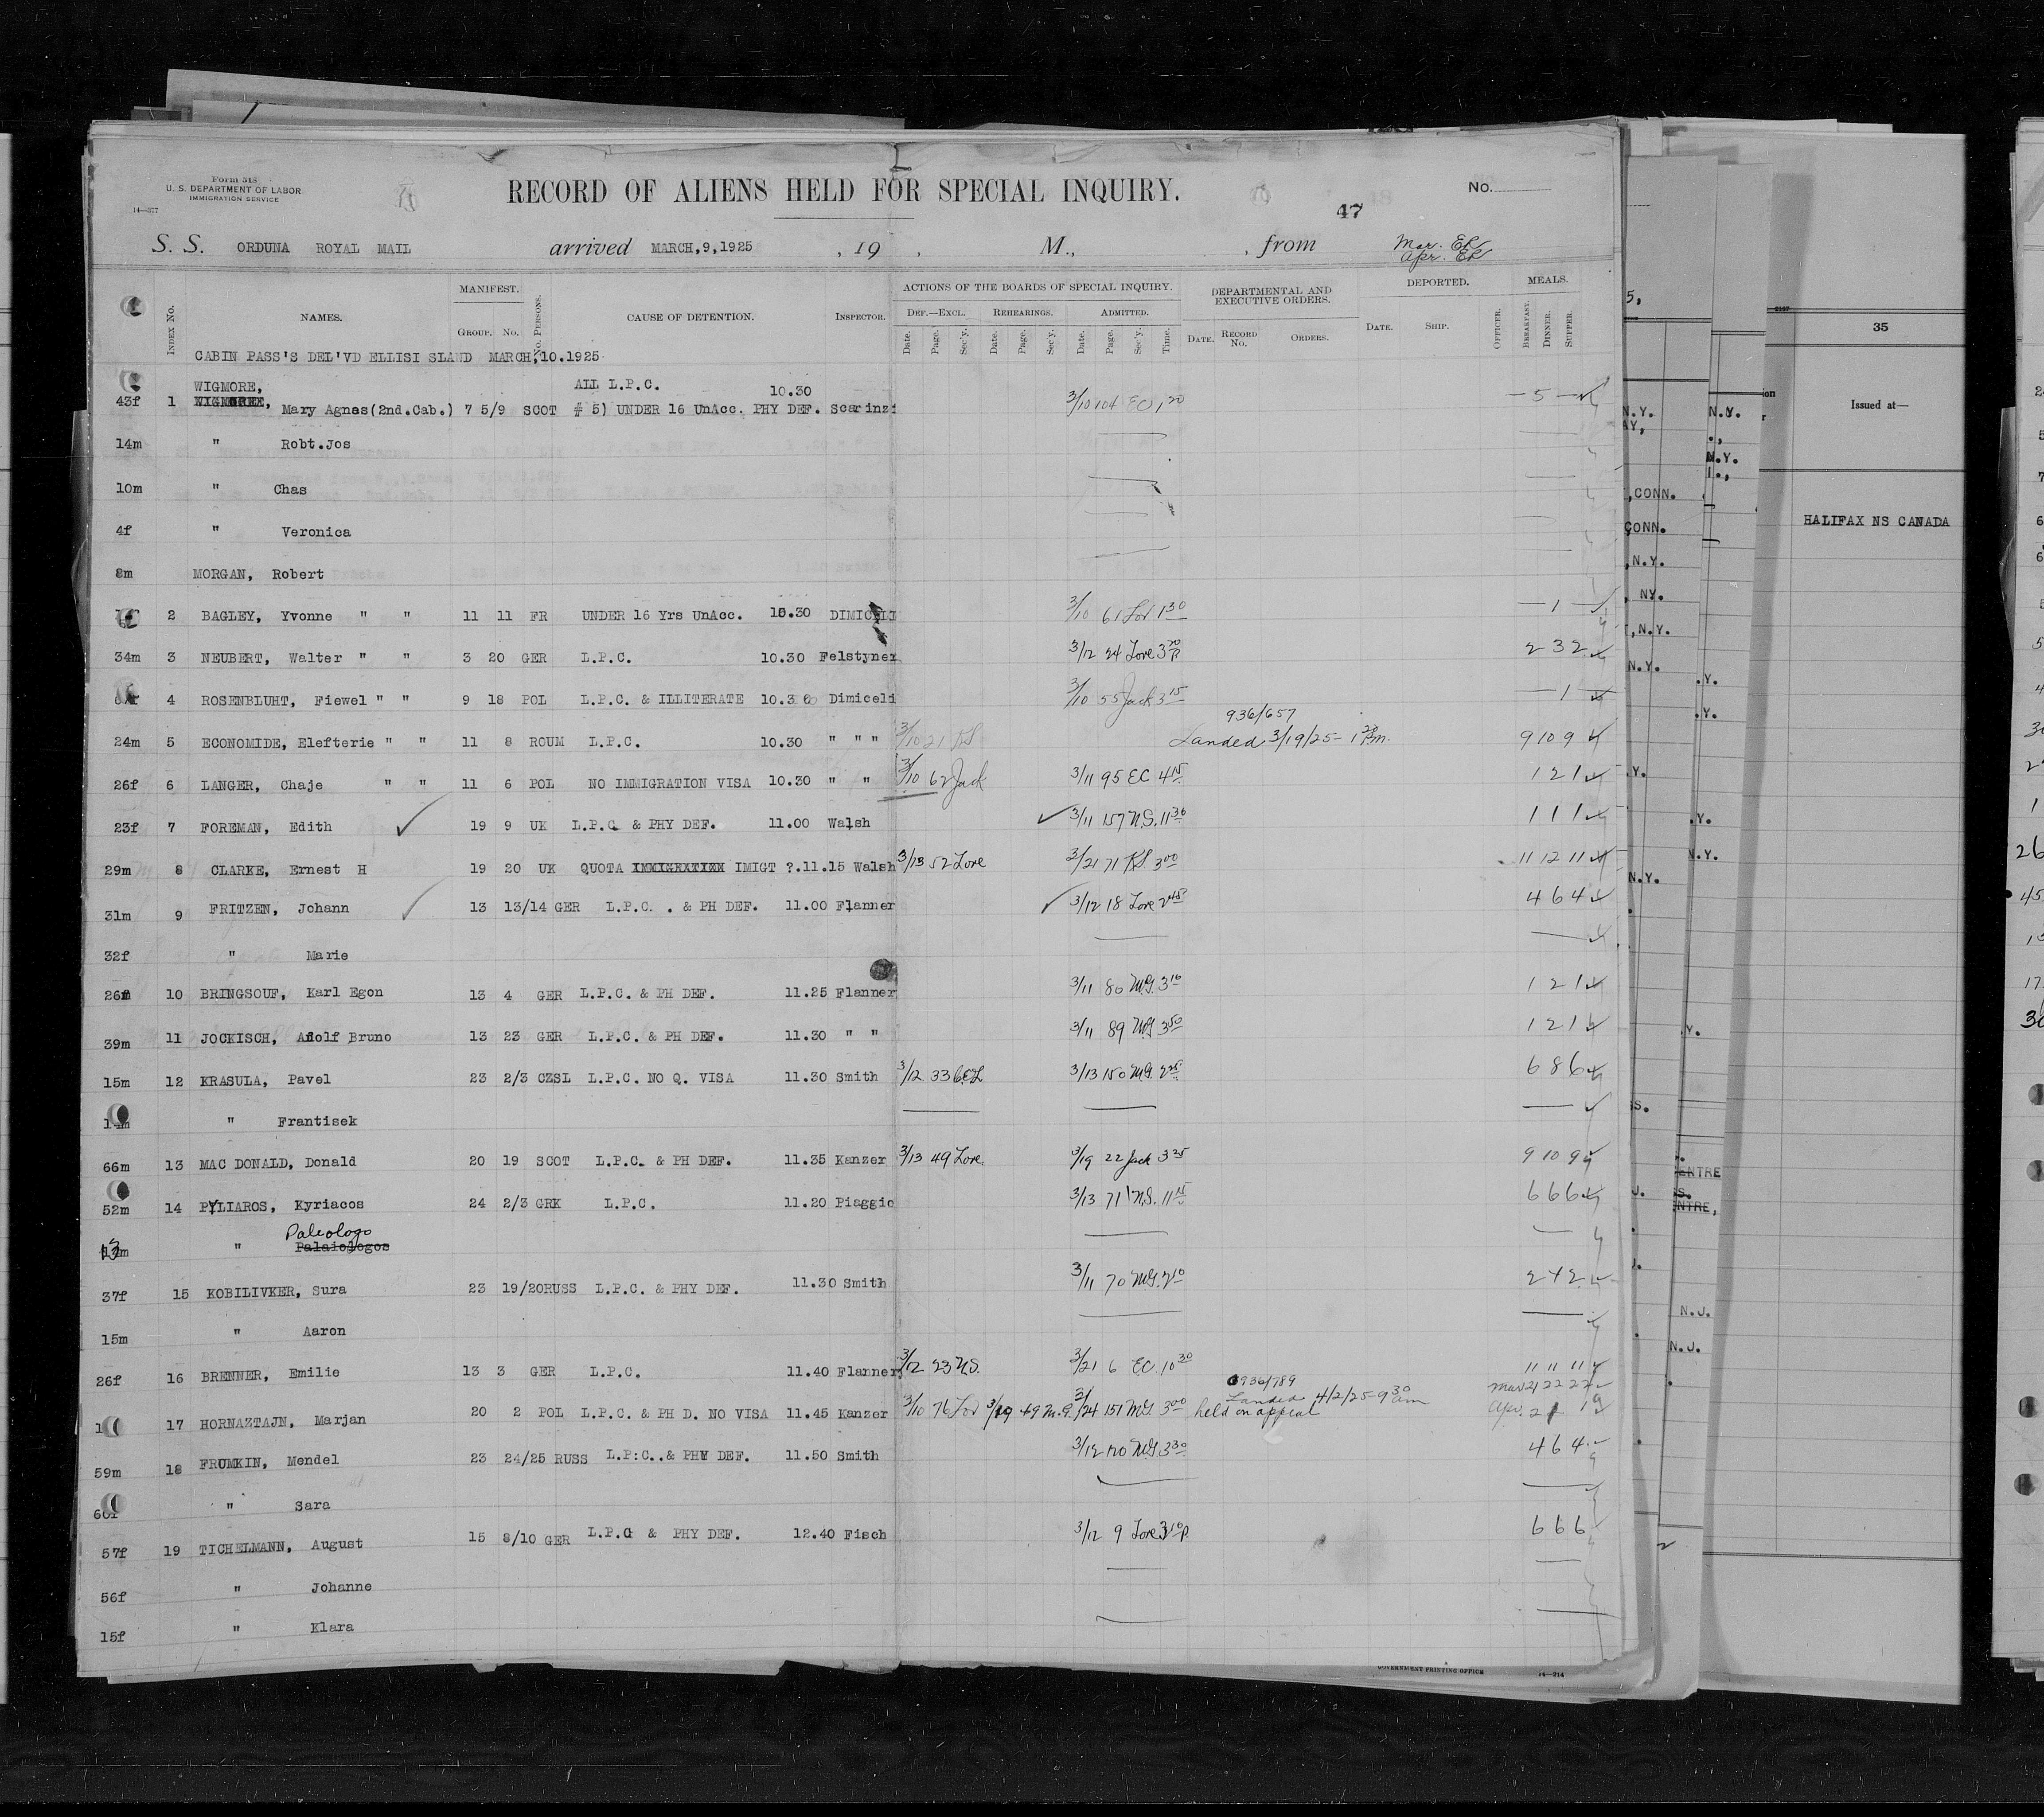 Form 518
U. S. DEPARTMENT OF LABOR
IMMIGRATION SERVICE
14—377
RECORD OF ALIENS HELD FOR SPECIAL INQUIRY.
No.
47
S. S. ORDUNA ROYAL MAIL arrived MARCH,9,1925 , 19 , M., , from Mar. ER
Apr. ER
INDEX No. NAMES. MANIFEST. GROUP. No. No. PERSONS. CAUSE OF DETENTION. INSPECTOR. ACTIONS OF THE BOARDS OF SPECIAL INQUIRY. DEPARTMENTAL AND EXECUTIVE ORDERS. DEPORTED. MEALS.
DEF.—EXCL. REHEARINGS. ADMITTED.
Date. Page. Sec'y. Date. Page. Sec'y. Date. Page. Sec'y. Time. DATE. RECORD No. ORDERS. DATE. SHIP. OFFICER. BREAKFAST. DINNER. SUPPER.
CABIN PASS'S DEL'VD ELLISI SLAND MARCH,10.1925
WIGMORE, ALL L.P.C. 10.30
43f 1 Mary Agnes(2nd.Cab.) 7 5/9 SCOT # 5) UNDER 16 UnAcc. PHY DEF. Scarinzi 3/10 104 EC 1 20 — 5 —
14m " Robt.Jos
10m " Chas
4f " Veronica
8m MORGAN, Robert
2 BAGLEY, Yvonne " " 11 11 FR UNDER 16 Yrs UnAcc. 10.30 DIMICELI 3/10 61 Lov 1 30 — 1 —
34m 3 NEUBERT, Walter " " 3 20 GER L.P.C. 10.30 Felstyner 3/12 24 Lore 3 20 P 2 3 2
4 ROSENBLUHT, Fiewel " " 9 18 POL L.P.C. & ILLITERATE 10.30 Dimiceli 3/10 55 Jack 3 15 — 1
936/657
24m 5 ECONOMIDE, Elefterie " " 11 8 ROUM L.P.C. 10.30 " " " 3/10 21 RS Landed 3/19/25 - 1 20 P.m. 9 10 9
26f 6 LANGER, Chaje " " 11 6 POL NO IMMIGRATION VISA 10.30 " " 3/10 62 Jack 3/11 95 EC 4 15 1 2 1
23f 7 FOREMAN, Edith 19 9 UK L.P.C & PHY DEF. 11.00 Walsh 3/11 157 N.S. 11 30 1 1 1
29m 8 CLARKE, Ernest H 19 20 UK QUOTA IMMIGRATION IMIGT ?.11.15 Walsh 3/13 52 Lore 3/21 71 RS 3 00 11 12 11
31m 9 FRITZEN, Johann 13 13/14 GER L.P.C. . & PH DEF. 11.00 Flanner 3/12 18 Lore 2 45 4 6 4
32f " Marie
26m 10 BRINGSOUF, Karl Egon 13 4 GER L.P.C. & PH DEF. 11.25 Flanner 3/11 80 M.G. 3 10 1 2 1
39m 11 JOCKISCH, Adolf Bruno 13 23 GER L.P.C. & PH DEF. 11.30 " " 3/11 89 MG 3 50 1 2 1
15m 12 KRASULA, Pavel 23 2/3 CZSL L.P.C. NO Q. VISA 11.30 Smith 3/12 336 3/13 150 M.G. 2 25 6 8 6
14m " Frantisek
66m 13 MAC DONALD, Donald 20 19 SCOT L.P.C. & PH DEF. 11.35 Kanzer 3/13 49 Lore. 3/19 22 Jack 3 25 9 10 9
52m 14 PYLIAROS, Kyriacos 24 2/3 GRK L.P.C. 11.20 Piaggio 3/13 71 N.S. 11 15 6 6 6
Paleologo
13m " Palaiologos
37f 15 KOBILIVKER, Sura 23 19/20RUSS L.P.C. & PHY DEF. 11.30 Smith 3/11 70 M.G. 2 10 2 4 2
15m " Aaron
26f 16 BRENNER, Emilie 13 3 GER L.P.C. 11.40 Flanner 3/12 23 N.S. 3/21 6 EC. 10 30 11 11 11
936/789
Landed 4/2/25 - 9 30 am Mar 21 22 22
17 HORNAZTAJN, Marjan 20 2 POL L.P.C. & PH D. NO VISA 11.45 Kanzer 3/10 76 Lov 3/19 49 M.G. 3/24 151 MG 3 00 held on appeal Apr. 2 1 1
59m 18 FRUMKIN, Mendel 23 24/25 RUSS L.P:C..& PHY DEF. 11.50 Smith 3/12 120 MG 3 30 4 6 4
60f " Sara
57f 19 TICHELMANN, August 15 8/10 GER L.P.C & PHY DEF. 12.40 Fisch 3/12 9 Lore 3 10 P. 6 6 6
56f " Johanne
15f " Klara
GOVERNMENT PRINTING OFFICE 14—214
35
Issued at—
HALIFAX NS CANADA
N.Y.
N.Y.
N.Y.
,CONN.
CONN.
,N.Y.
NY.
,N.Y.
N.Y.
N.Y.
N.Y.
N.J.
N.J.